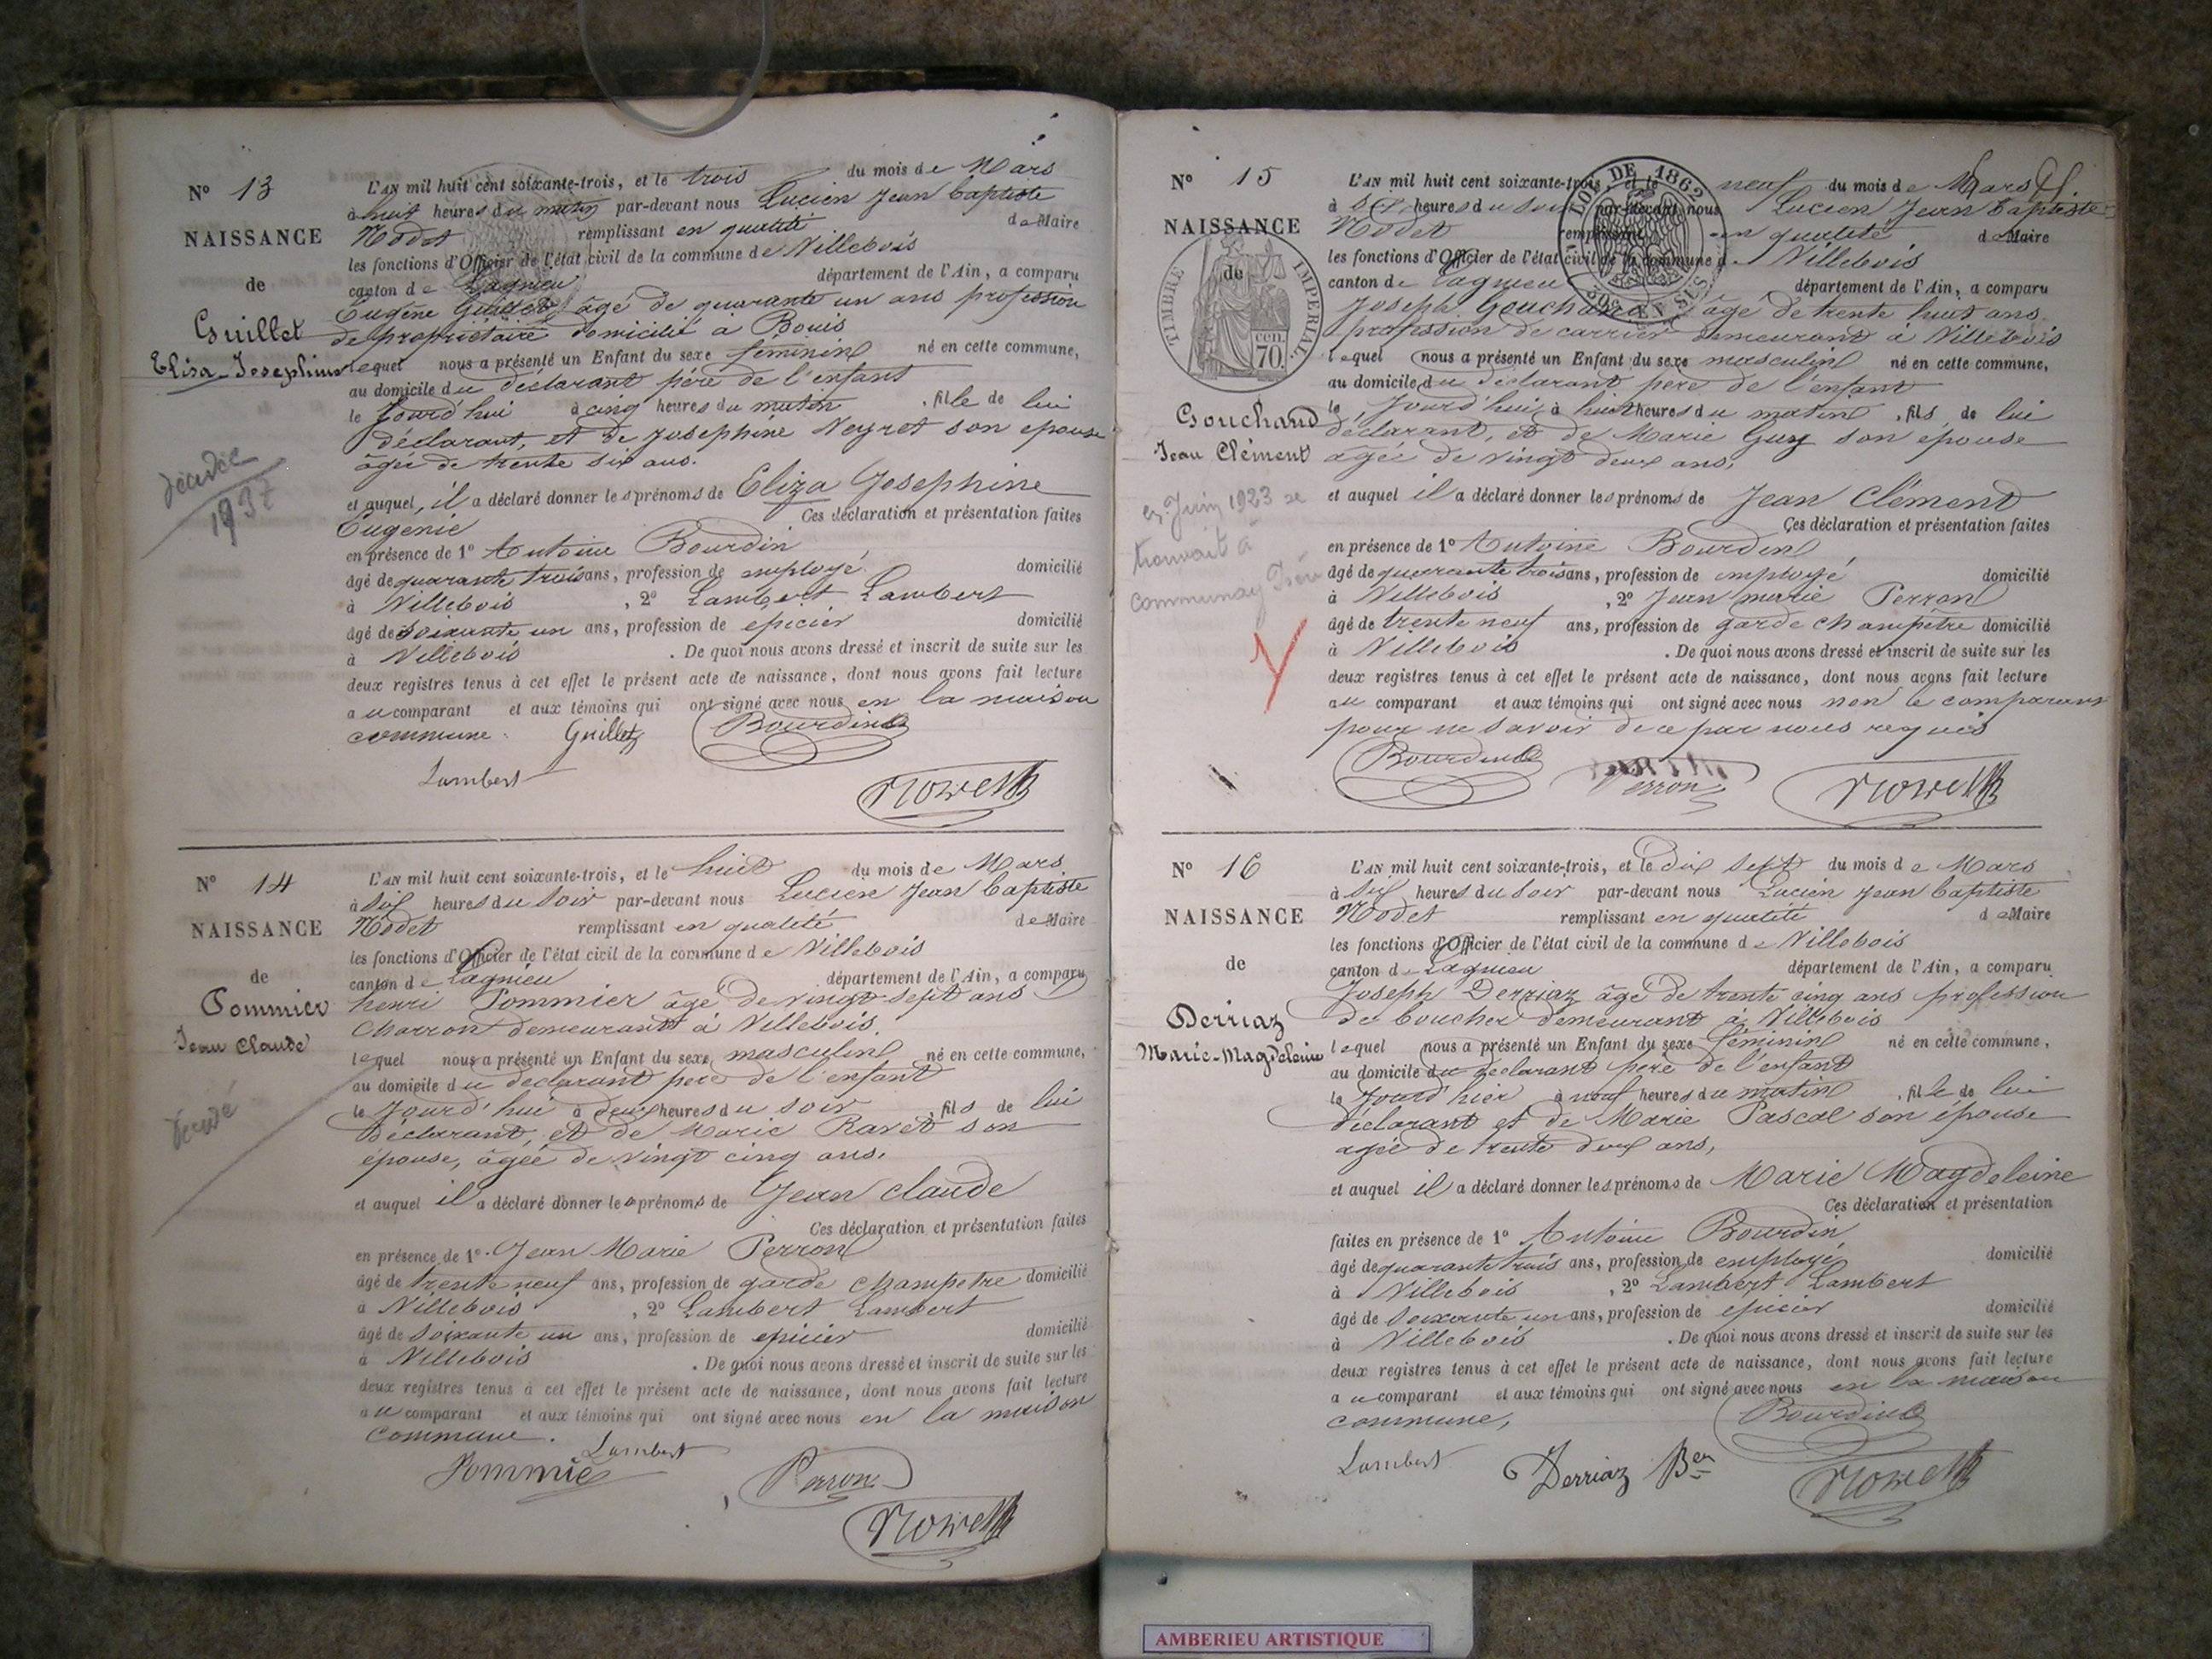 N° 13
NAISSANCE
de
Guillet
Elisa-Josephine
décédée
1937
L'AN mil huit cent soixante-trois, et le trois du mois de Mars
à huit heures du matin par-devant nous Lucien Jean Baptiste
Nodet remplissant en qualité de Maire
les fonctions d'Officier de l'état civil de la commune de Villebois
canton de Lagnieu département de l'Ain, a comparu
Eugène Guillet, âgé de quarante un ans profession
de propriétaire domicilié à Bouis
lequel nous a présenté un Enfant du sexe féminin né en cette commune,
au domicile du déclarant père de l'enfant
le Jourd'hui à cinq heures du matin, fille de lui
déclarant, et de Josephine Neyret son epouse
âgée de trente six ans.
et auquel, il a déclaré donner les prénoms de Eliza Josephine
Eugenie Ces déclaration et présentation faites
en présence de 1° Antoine Bourdin
âgé de quarante trois ans, profession de employé domicilié
à Villebois, 2° Lambert Lambert
âgé de soixante un ans, profession de epicier domicilié
à Villebois. De quoi nous avons dressé et inscrit de suite sur les
deux registres tenus à cet effet le présent acte de naissance, dont nous avons fait lecture
au comparant et aux témoins qui ont signé avec nous en la maison
commune. Guillet Bourdin
Lambert
N° 14
NAISSANCE
de
Pommier
Jean Claude
L'AN mil huit cent soixante-trois, et le huit du mois de Mars
à six heures du soir par-devant nous Lucien Jean Baptiste
Nodet remplissant en qualité de Maire
les fonctions d'Officier de l'état civil de la commune de Villebois
canton de Lagnieu département de l'Ain, a comparu
henri Pommier âgé de vingt sept ans
Charron demeurant à Villebois.
lequel nous a présenté un Enfant du sexe masculin né en cette commune,
au domicile du declarant pere de l'enfant
le Jourd'hui à deux heures du soir, fils de lui
déclarant, et de Marie Ravet son
épouse, âgée de vingt cinq ans.
et auquel il a déclaré donner les prénoms de Jean Claude
Ces déclaration et présentation faites
en présence de 1° Jean Marie Perron
âgé de trente neuf ans, profession de garde champetre domicilié
à Villebois, 2° Lambert Lambert
âgé de soixante un ans, profession de epicier domicilié
à Villebois. De quoi nous avons dressé et inscrit de suite sur les
deux registres tenus à cet effet le présent acte de naissance, dont nous avons fait lecture
au comparant et aux témoins qui ont signé avec nous en la maison
commune. Lambert
Pommier Perron
N° 15
NAISSANCE
de
TIMBRE IMPERIAL
70 cen.
LOI DE 1862
Gouchand
Jean Clément
en Juin 1923 se
trouvait à
communay Isère
L'AN mil huit cent soixante-trois, et le neuf du mois de Mars
à six heures du soir par-devant nous Lucien Jean Baptiste
Nodet remplissant en qualité de Maire
les fonctions d'Officier de l'état civil de la commune de Villebois
canton de Lagnieu département de l'Ain, a comparu
Joseph Gouchand âgé de trente huit ans
profession de carrier demeurant à Villebois
lequel nous a présenté un Enfant du sexe masculin né en cette commune,
au domicile du declarant pere de l'enfant
le Jourd'hui à huit heures du matin, fils de lui
déclarant, et de Marie Guy son épouse
agée de vingt deux ans,
et auquel il a déclaré donner les prénoms de Jean Clément
Ces déclaration et présentation faites
en présence de 1° Antoine Bourdin
âgé de quarante trois ans, profession de employé domicilié
à Villebois, 2° Jean marie Perron
âgé de trente neuf ans, profession de garde champêtre domicilié
à Villebois. De quoi nous avons dressé et inscrit de suite sur les
deux registres tenus à cet effet le présent acte de naissance, dont nous avons fait lecture
au comparant et aux témoins qui ont signé avec nous non le comparant
pour ne savoir de ce par nous requis
Bourdin Perron
N° 16
NAISSANCE
de
Derriaz
Marie-Magdeleine
L'AN mil huit cent soixante-trois, et le dix sept du mois de Mars
à six heures du soir par-devant nous Lucien Jean Baptiste
Nodet remplissant en qualité de Maire
les fonctions d'Officier de l'état civil de la commune de Villebois
canton de Lagnieu département de l'Ain, a comparu
Joseph Derriaz âgé de trente cinq ans profession
de boucher demeurant à Villebois
lequel nous a présenté un Enfant du sexe féminin né en cette commune,
au domicile du declarant pere de l'enfant
le Jourd'hier à neuf heures du matin, fille de lui
déclarant et de Marie Pascal son épouse
agée de trente deux ans,
et auquel il a déclaré donner les prénoms de Marie Magdeleine
Ces déclaration et présentation
faites en présence de 1° Antoine Bourdin
âgé de quarante trois ans, profession de employé domicilié
à Villebois, 2° Lambert Lambert
âgé de soixante un ans, profession de epicier domicilié
à Villebois. De quoi nous avons dressé et inscrit de suite sur les
deux registres tenus à cet effet le présent acte de naissance, dont nous avons fait lecture
au comparant et aux témoins qui ont signé avec nous en la maison
commune, Bourdin
Lambert Derriaz
AMBERIEU ARTISTIQUE